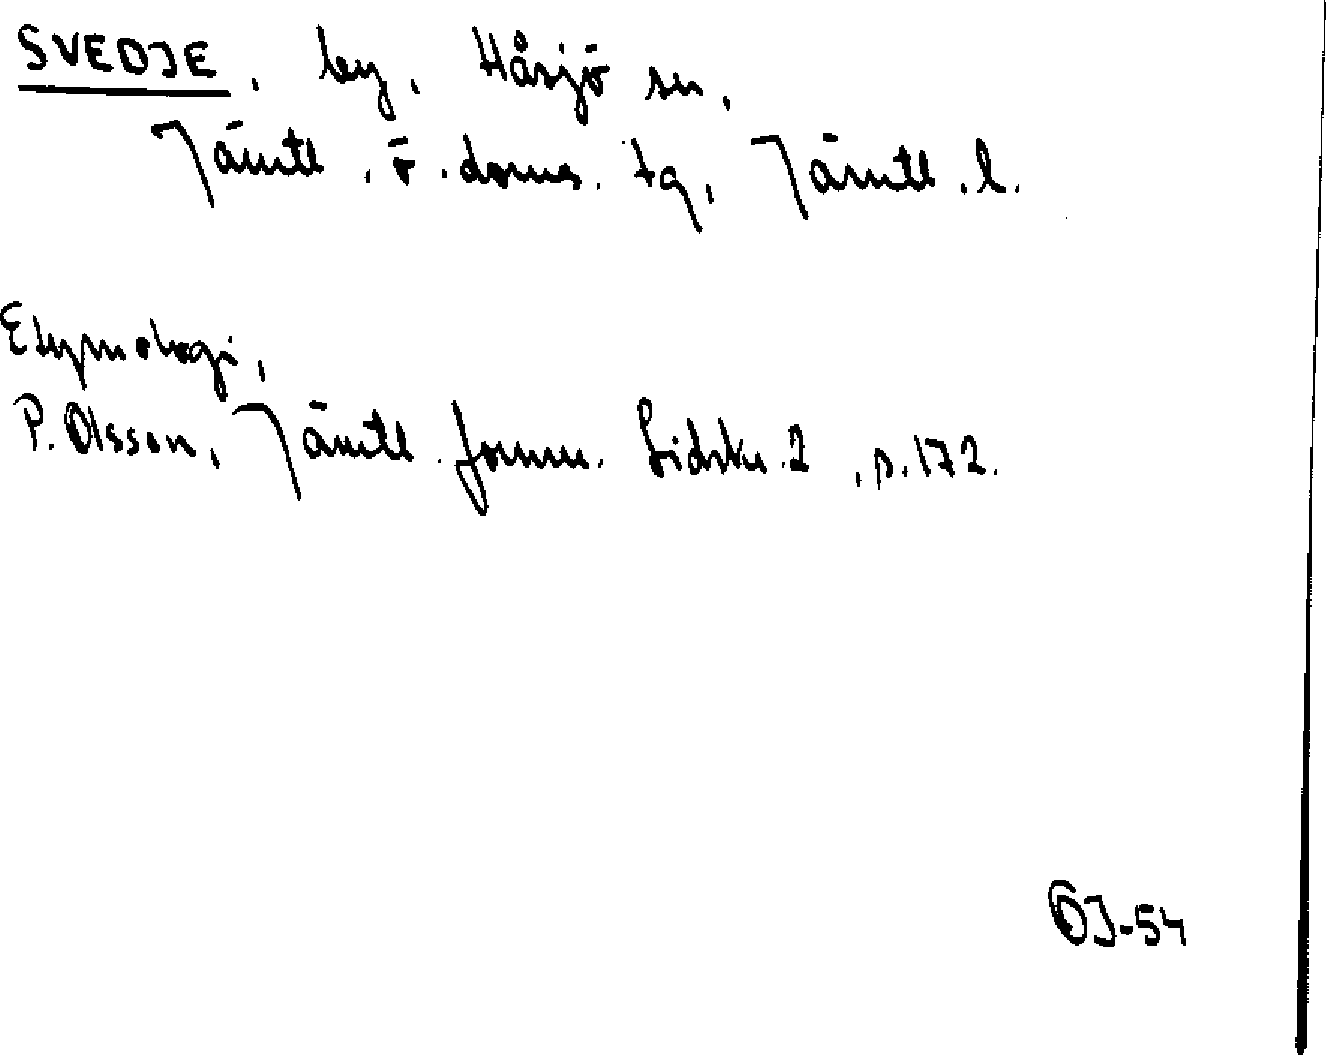 SVEDJE, by, Håsjö sn,
Jämtl. ö. doms. tg, Jämtl. l.
Etymologi,
P. Olsson, Jämtl. fornm. tidskr. 2, s. 172.
OJ-54